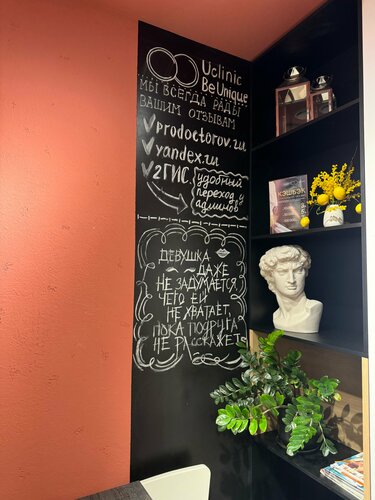 Uclinic
BeUnique
МЫ ВСЕГДА РАДЫ
ВАШИМ ОТЗЫВАМ
prodoctorov.ru
yandex.ru
2ГИС
УДОБНЫЙ
ПЕРЕХОД У
АДМИНОВ
ДЕВУШКА
ДАЖЕ
НЕ ЗАДУМАЕТСЯ,
ЧЕГО ЕЙ
НЕ ХВАТАЕТ,
ПОКА ПОДРУГА
НЕ РАССКАЖЕТ
КЭШБЭК